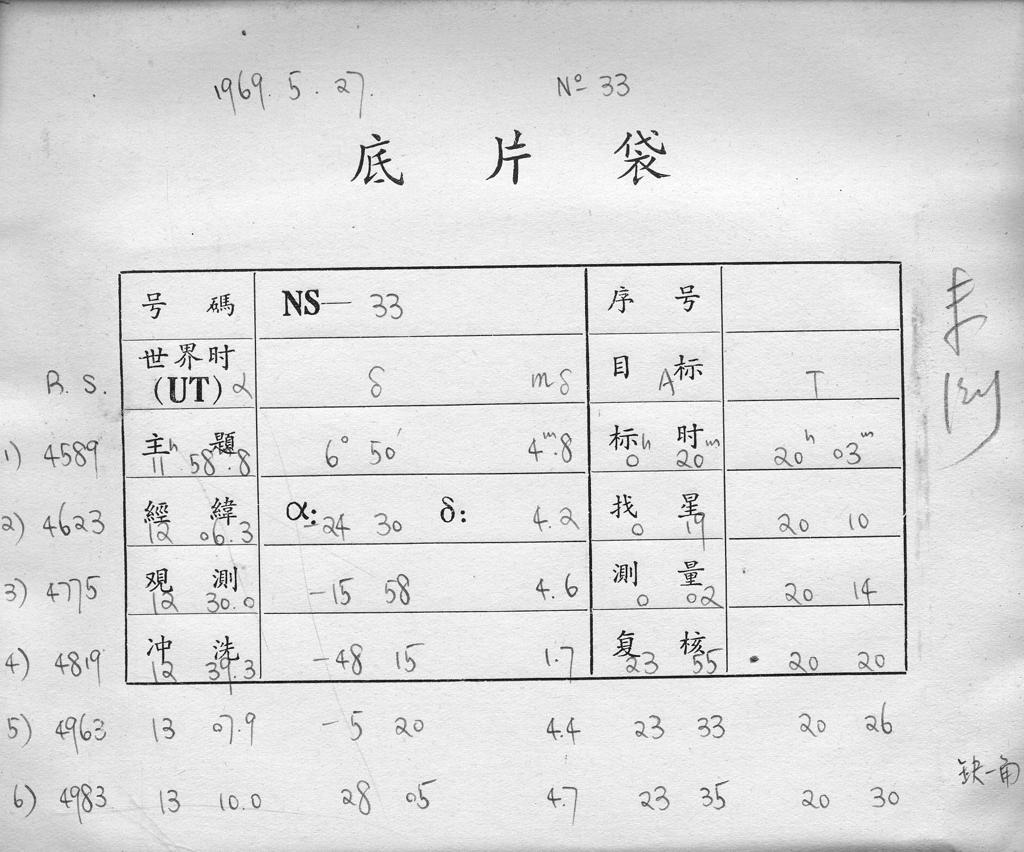 1969. 5. 27. Nº 33
底片袋
号碼 NS— 33 序号
世界时 目标
B. S. (UT) α δ mδ A T
主題 标时
1) 4589 11ʰ 58ᵐ.8 6° 50′ 4ᵐ.8 0ʰ 20ᵐ 20ʰ 03ᵐ
經緯 α: δ: 找星
2) 4623 12 06.3 -24 30 4.2 0 19 20 10
观測 測量
3) 4775 12 30.0 -15 58 4.6 0 02 20 14
冲洗 复核
4) 4819 12 39.3 -48 15 1.7 23 55 20 20
5) 4963 13 07.9 -5 20 4.4 23 33 20 26
6) 4983 13 10.0 28 05 4.7 23 35 20 30
未
测
缺一角